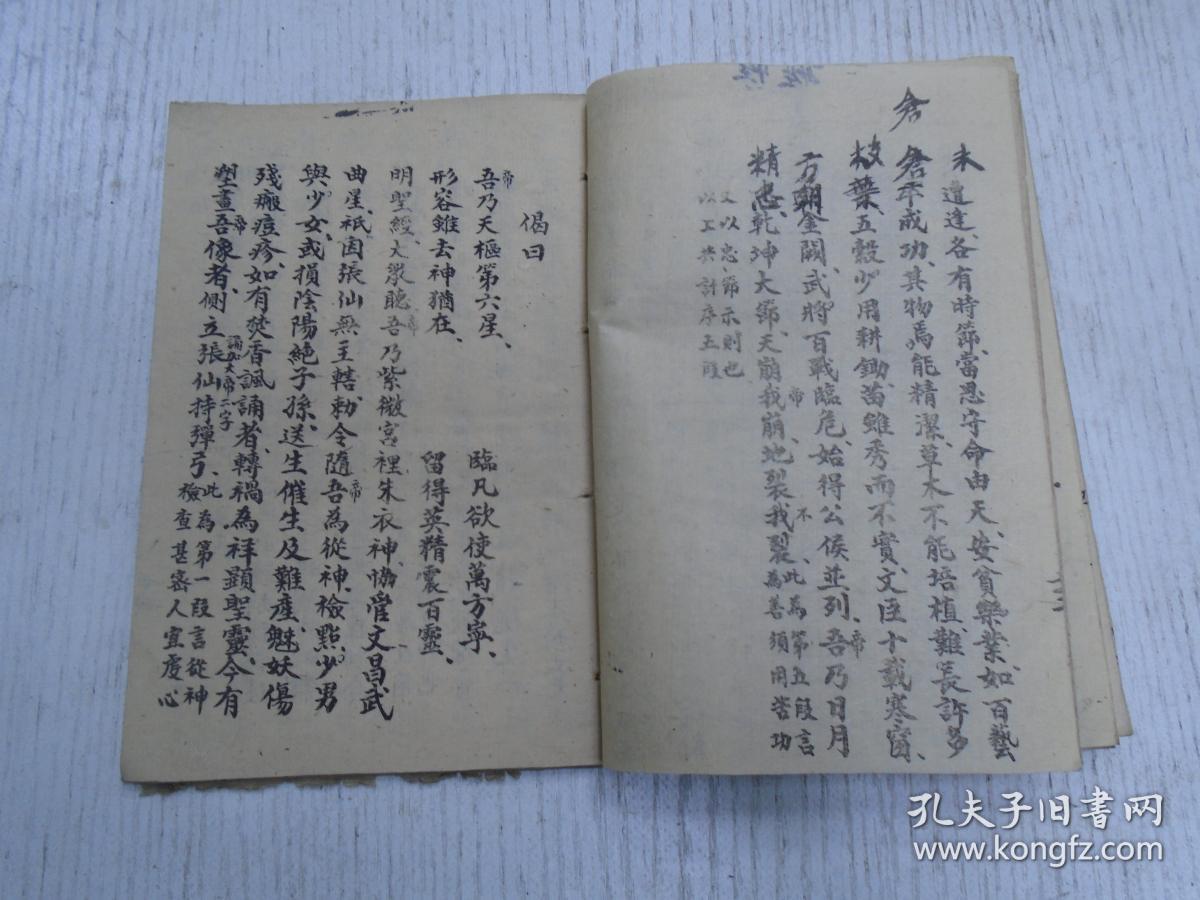 倉
未遭逢各有時節、當思守命由天、安貧樂業、如百藝
倉卒成功、其物焉能精潔、草木不能培植難長許多
枝葉、五穀少用耕鋤、苗雖秀而不實、文臣十載寒窗、
方朝金闕、武將百戰臨危、始得公侯並列、吾帝乃日月
精忠、乾坤大節、天崩我帝崩、地裂我不裂、此為第五段言
為善須用苦功
又以忠節示則也
以上共計序五段
偈曰
吾帝乃天樞第六星、臨凡欲使萬方寧、
形容雖去神猶在、留得英精震百靈、
明聖經、大眾聽、吾帝乃紫微宮裡朱衣神、協管文昌武
曲星、祇因張仙無主轄、勅令隨吾帝為從神、檢點少男
與少女、或損陰陽絕子孫、送生催生及難產、魅妖傷
殘癍痘疹、如有焚香諷誦者、轉禍為祥顯聖靈、今有
誦如大帝二字
塑畫吾帝像者、側立張仙持彈弓、此為第一段言從神
檢查甚密人宜虔心
孔夫子旧書网
www.kongfz.com